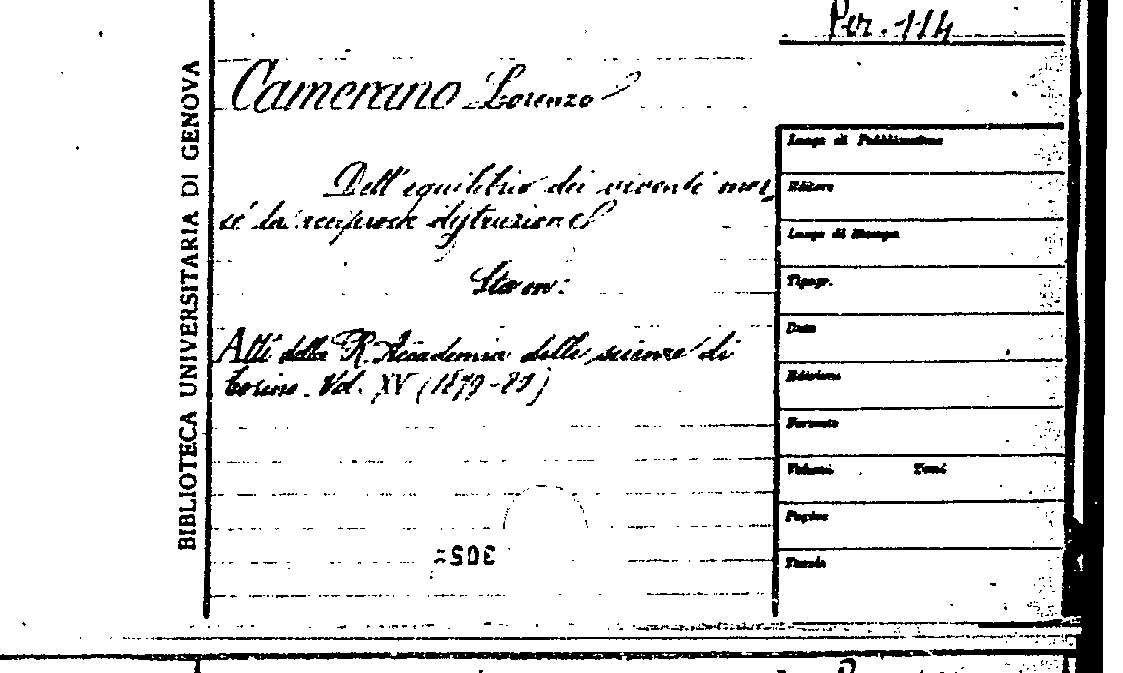 Per. 114
BIBLIOTECA UNIVERSITARIA DI GENOVA
Camerano Lorenzo
Dell'equilibrio dei viventi mer
cé la reciproca distruzione
Sta in:
Atti della R. Accademia delle scienze di
Torino. Vol. XV (1879-80)
Luogo di Pubblicazione
Editore
Luogo di Stampa
Tipogr.
Data
Edizione
Formato
Volumi Tomi
Pagine
Tavole